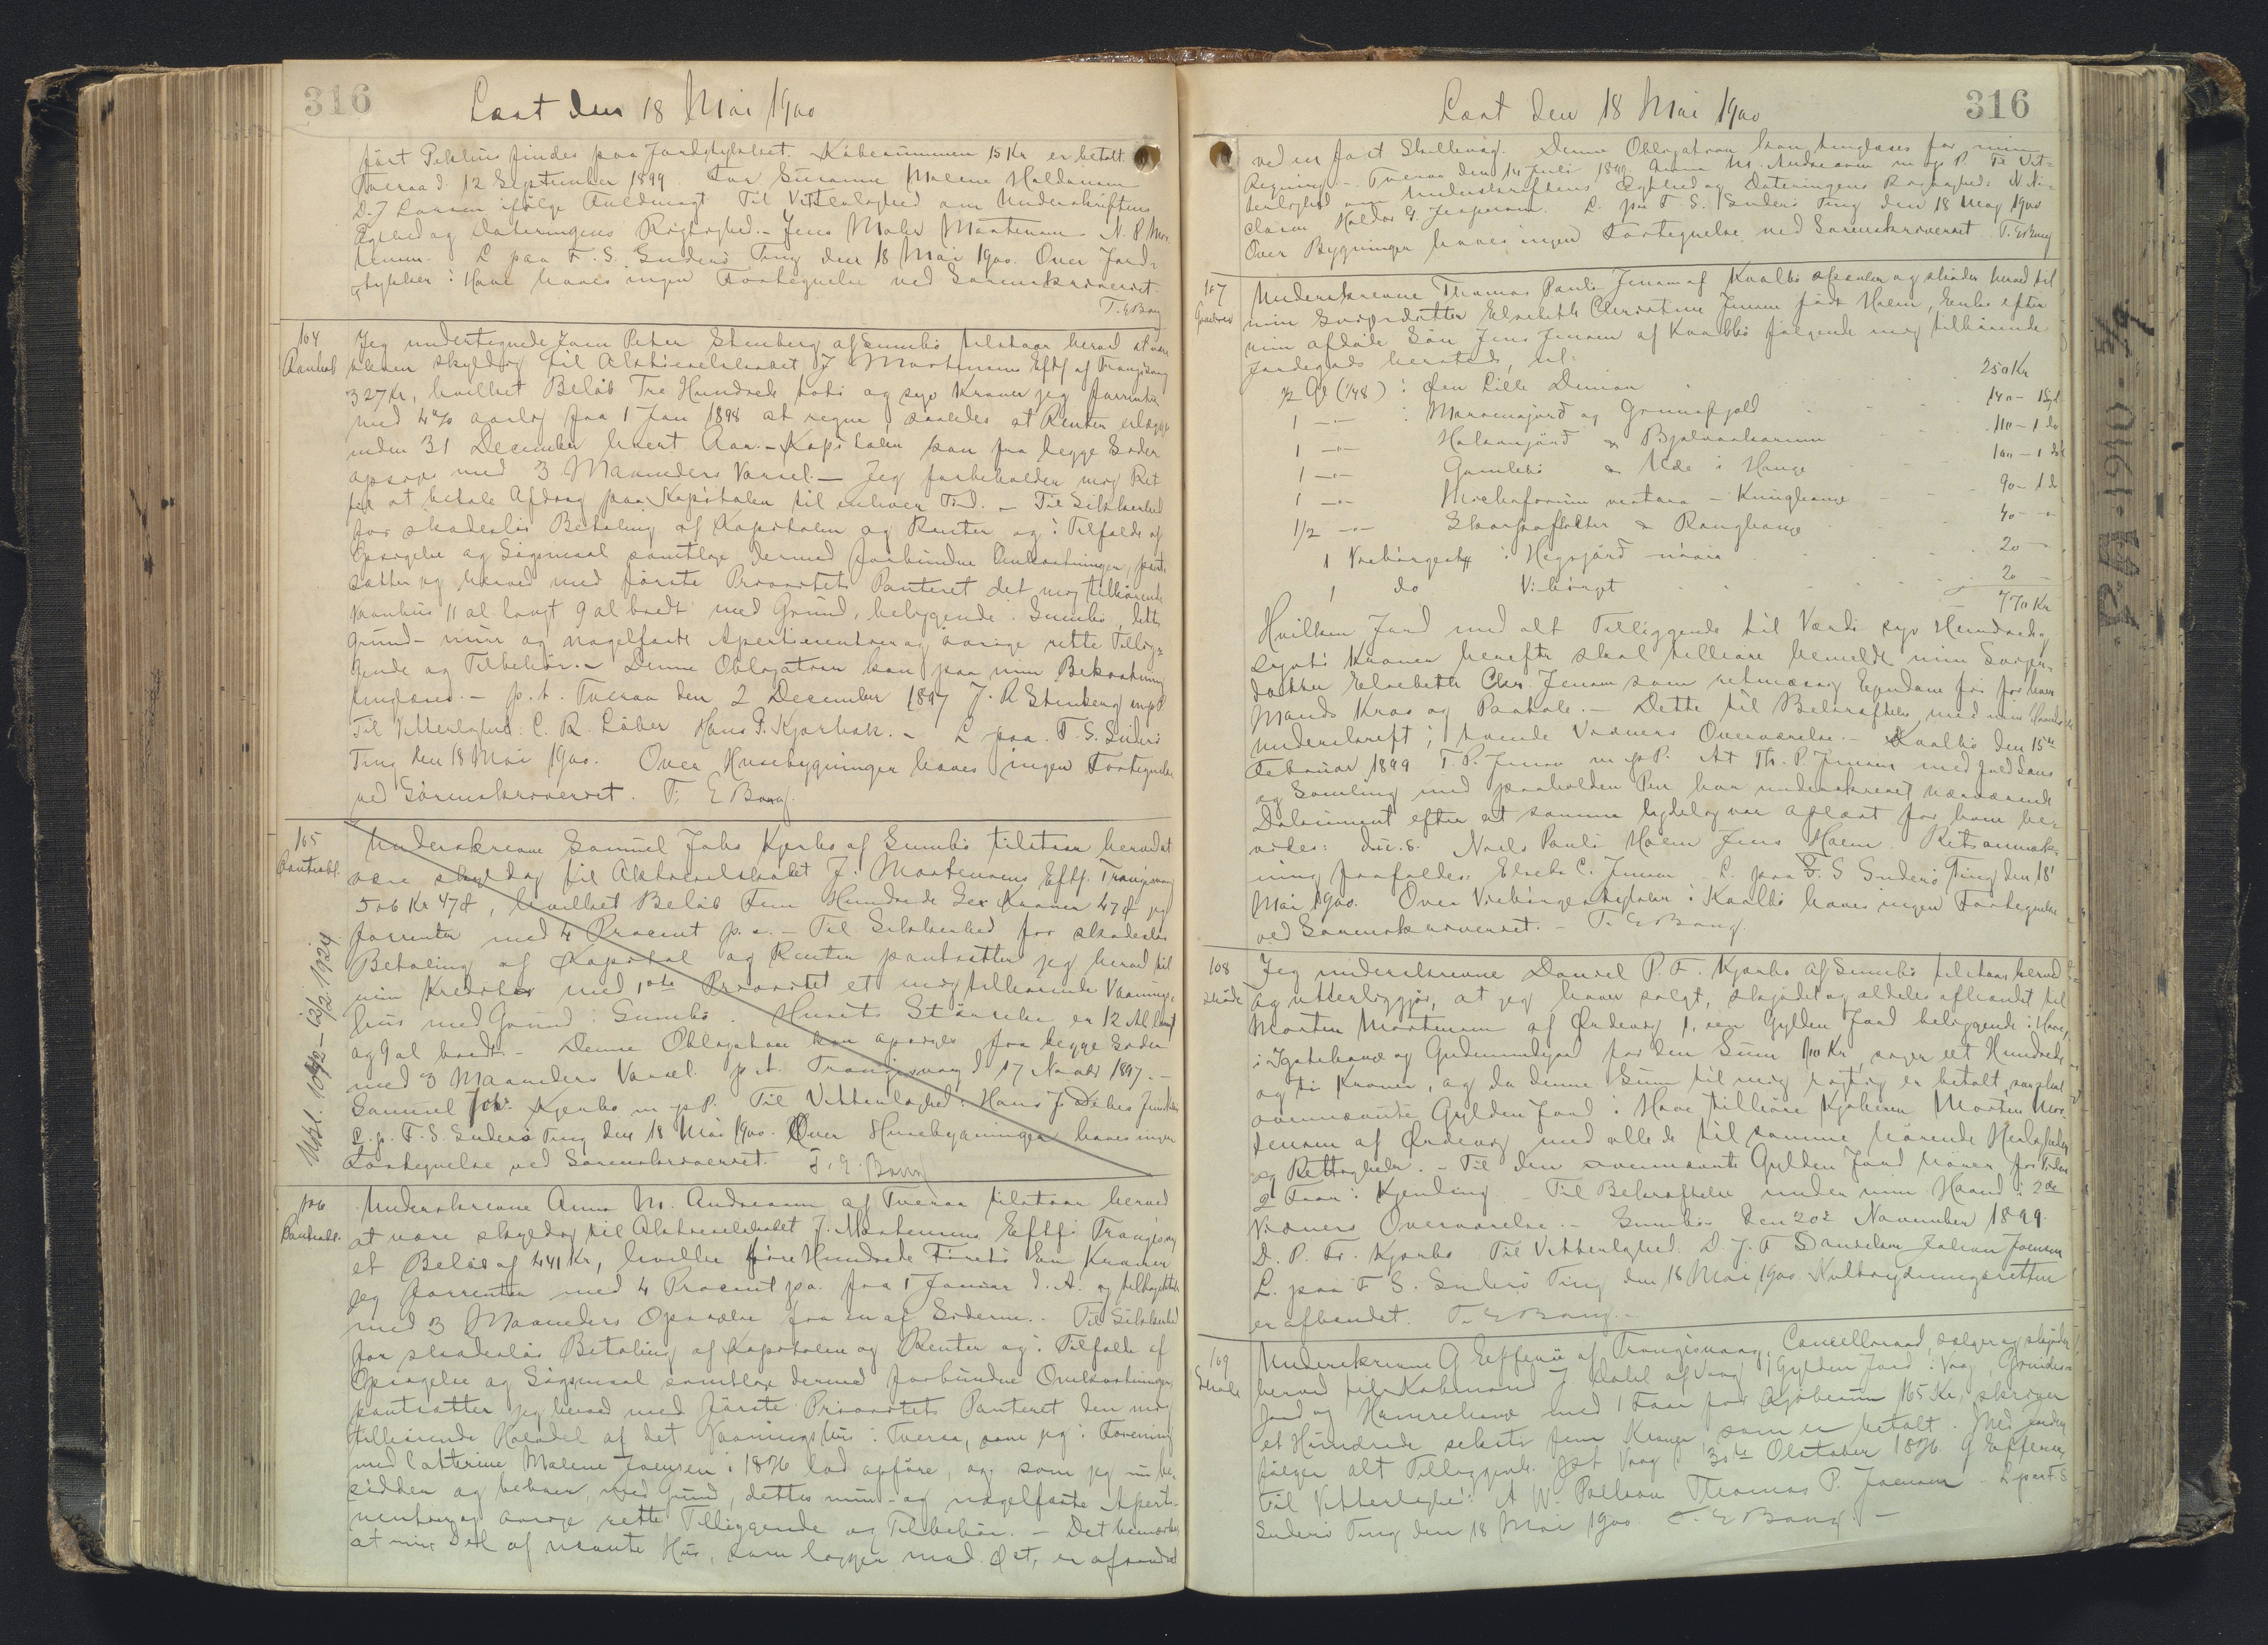 316
Læst den 18 Mai 1900
ført Pakhus findes paa Jordstykket. Købesummen 15 Kr er betalt
Tveraa d. 12 September 1899 For Susanne Malene Haldansen
D. J Larsen ifølge Fuldmagt Til Vitterlighed om Underskriftens
Ægthed og Dateringens Rigtighed.- Jens Mohr Mortensen N. P. Mor-
tensen. L. paa F. S. Suderø Ting den 18 Mai 1900. Over Jord-
stykker i Have haves ingen Fortegnelse ved Sorenskriveriet
T. E Bang
104
Panteobl
Jeg undertegnede Joen Peter Stenberg af Sumbø tilstaar herved at være
bleven skyldig til Aktieselskabet J. Mortensens Eftf af Trangisvaag
327 Kr, hvilket Beløb Tre Hundrede toti og syv Kroner jeg forrenter
med 4% aarlig fra 1 Jan 1898 at regne, saaledes at Renten erlægges
inden 31 December hvert Aar.- Kapitalen kan fra begge Sider
opsiges med 3 Maaneders Varsel.- Jeg forbeholder mig Ret
til at betale Afdrag paa Kapitalen til enhver Tid. - Til Sikkerhed
for skadesløs Betaling af Kapitalen og Renter og i Tilfælde af
Opsigelse og Søgsmaal samtlige dermed forbundne Omkostninger, pant-
sætter jeg herved med første Prioritets Panteret det mig tilhørende
Vaanhus 11 al langt 9 al bredt med Grund, beliggende i Sumbø, dette
Grund- mur og nagelfaste Apertinentier og øvrige rette Tillig-
gende og Tilbehør.- Denne Obligation kan paa min Bekostning
tinglæses.- p. t. Tveraa den 2 December 1897 J. P. Stenberg m p P
Til Vitterlighed: C. R. Løbner Hans P. Kjærbæk. - L paa F. S. Suderø
Ting den 18 Mai 1900. Over Husebygninger haves ingen Fortegnelse
ved Sorenskriveriet. T. E Bang.
105
Panteobl.
Underskrevne Samuel Johs Kjærbo af Sumbø tilstaar herved at
være skyldig til Aktieselskabet J. Mortensens Eftf. Trangisvaag
506 Kr 47 Ø, hvilket Beløb Fem Hundrede Sex Kroner 47 Ø jeg
forrenter med 4 Procent p. a. - Til Sikkerhed for skadesløs
Betaling af Kapital og Renter pantsætter jeg herved til
min Kreditor med 1ste Prioritet et mig tilhørende Vaanings-
hus med Grund i Sumbø. Husets Størrelse er 12 Al langt
og 9 al bredt - Denne Obligation kan opsiges fra begge Sider
med 3 Maaneders Varsel. p. t. Trangisvaag d 17 Novbr 1897. -
Samuel Johs. Kjærbo m p P. Til Vitterlighed: Hans J. Debes
L. p. F. S. Suderø Ting den 18 Mai 1900. Over Husebygninger haves ingen
Fortegnelse ved Sorenskriveriet. T. E. Bang
106
Panteobl.
Underskrevne Anna M. Andreasen af Tveraa tilstaar herved
at være skyldig til Aktieselskabet J. Mortensens Eftf i Trangisvaag
et Beløb af 441 Kr, hvilke fire Hundrede Firti En Kroner
jeg forrenter med 4 Procent pa. fra 1 Januar d. A. og tilbagebetaler
med 3 Maaneders Opsigelse fra en af Siderne.- Til Sikkerhed
for skadesløs Betaling af Kapitalen og Renter og i Tilfælde af
Opsigelse og Søgsmaal samtlige dermed forbundne Omkostninger
pantsætter jeg herved med første Prioritets Panteret den mig
tilhørende Halvdel af det Vaaningshus i Tveraa, som jeg i Forening
med Catterine Malene Joensen i 1876 lod opføre, og som jeg nu be-
sidder og beboer, med Grund, dettes mur- og nagelfaste Aperti-
nentier og øvrige rette Tilliggende og Tilbehør. - Det bemærkes
at min Del af nævnte Hus, som ligger mod Øst, er afsondret
316
Læst den 18 Mai 1900
ved en fast Skillevæg. Denne Obligation kan tinglæses for min
Regning.- Tveraa den 14 Juli 1899 Anna M. Andreasen m p P. Til Vit-
terlighed om Underskriftens Ægthed og Dateringens Rigtighed: N. Ni-
clasen Haldor G. Jespersen. L. paa F. S. Suderø Ting den 18 Mai 1900
Over Bygninger haves ingen Fortegnelse ved Sorenskriveriet T. E Bang
107
Underskrevne Thomas Pauli Jensen af Kvalbø afhænder og skøder herved til
min Svigerdatter Elsebeth Christine Jensen født Holm, Enke efter
min afdøde Søn Jens Jensen af Kvalbø følgende mig tilhørende
Jordegods hersteds, nl:
½ Gl (1/48) i Den Lille Dimon 250 Kr
1 -"- i Marvenajord og Grønnafjold 140 -
1 -"- Halsangjørd & 110 - 1 do
1 -"- Gamlebø & Niðe i Hauge 100 - 1 do
1 -"- vestara - 90 - 1 do
1/2 -"- & 40 - "
1 Viebørgestk i Hegajørd 20 -
1 do Vibørgt 20 -
770 Kr
Hvilken Jord med alt Tilliggende til Værdi syv Hundrede og
syvti Kroner herefter skal tilhøre bemeldte min Sviger-
datter Elsebeth Chr. Jensen som retmæssig Eiendom fri for hver
Mands Krav og Paatale. - Dette til Bekræftelse med min Haands
Underskrift i tvende Vidners Overværelse.- Kvalbø den 15de
Februar 1899 T. P. Jensen m p P. At Th. P Jensen med fuld Sans
og Samling med paaholden Pen har underskrevet nærværende
Dokument efter at samme tydelig var oplæst for ham be-
vidnes: d.u.s. Niels Pauli Holm Jens Holm. Retsanmærk-
ning frafaldes. Elsebe C. Jensen - L. paa F. S Suderø Ting den 18'
Mai 1900. Over Viebørgestykker i Kvalbø haves ingen Fortegnelse
ved Sorenskriveriet. - T. E Bang.
108
Skøde
Jeg underskrevne Daniel P. F. Kjærbo af Sumbø tilstaar herved
og vitterliggjør, at jeg haver solgt, skjødet og aldeles afhændet til
Morten Mortensen af Ørdevig 1, een Gylden Jord beliggende i Hove,
i og for den Sum 110 Kr, siger eet Hundrede
og ti Kroner, og da denne Sum til mig rigtig er betalt, saa skal
ovennævnte Gylden Jord i Hove tilhøre Kjøberen Morten Mor-
tensen af Ørdevig med alle de til samme hørende Herligheder
og Rettigheder. - Til den ovennævnte Gylden Jord hører for Tiden
2 Faar i Kjending - Til Bekræftelse under min Haand i 2de
Vidners Overværelse.- Sumbø den 20de November 1899.
D. P. Fr. Kjærbo Til Vitterlighed. D. J. F Danielsen Johan Joensen
L. paa F S. Suderø Ting den 18 Mai 1900. Nulbrydningsretten
er afhændet. T. E Bang.-
109
Skøde
Underskrevne G Effersøe af Trangisvaag, Cancelliraad, sælger og skjøder
herved til Købmand J. Dahl af Vaag 1 Gylden Jord i Vaag
Jord og med 1 Faar for Kjøbesum 165 Kr, skriver
et Hundrede seksti fem Kroner, som er betalt. Med Jorden
følger alt Tilliggende. pt Vaag d 30te Oktober 1896 G Effersøe
Til Vitterlighed: A W. Poulsen Thomas P. Joensen. L paa F. S
Suderø Ting den 18 Mai 1900. T. E Bang.-